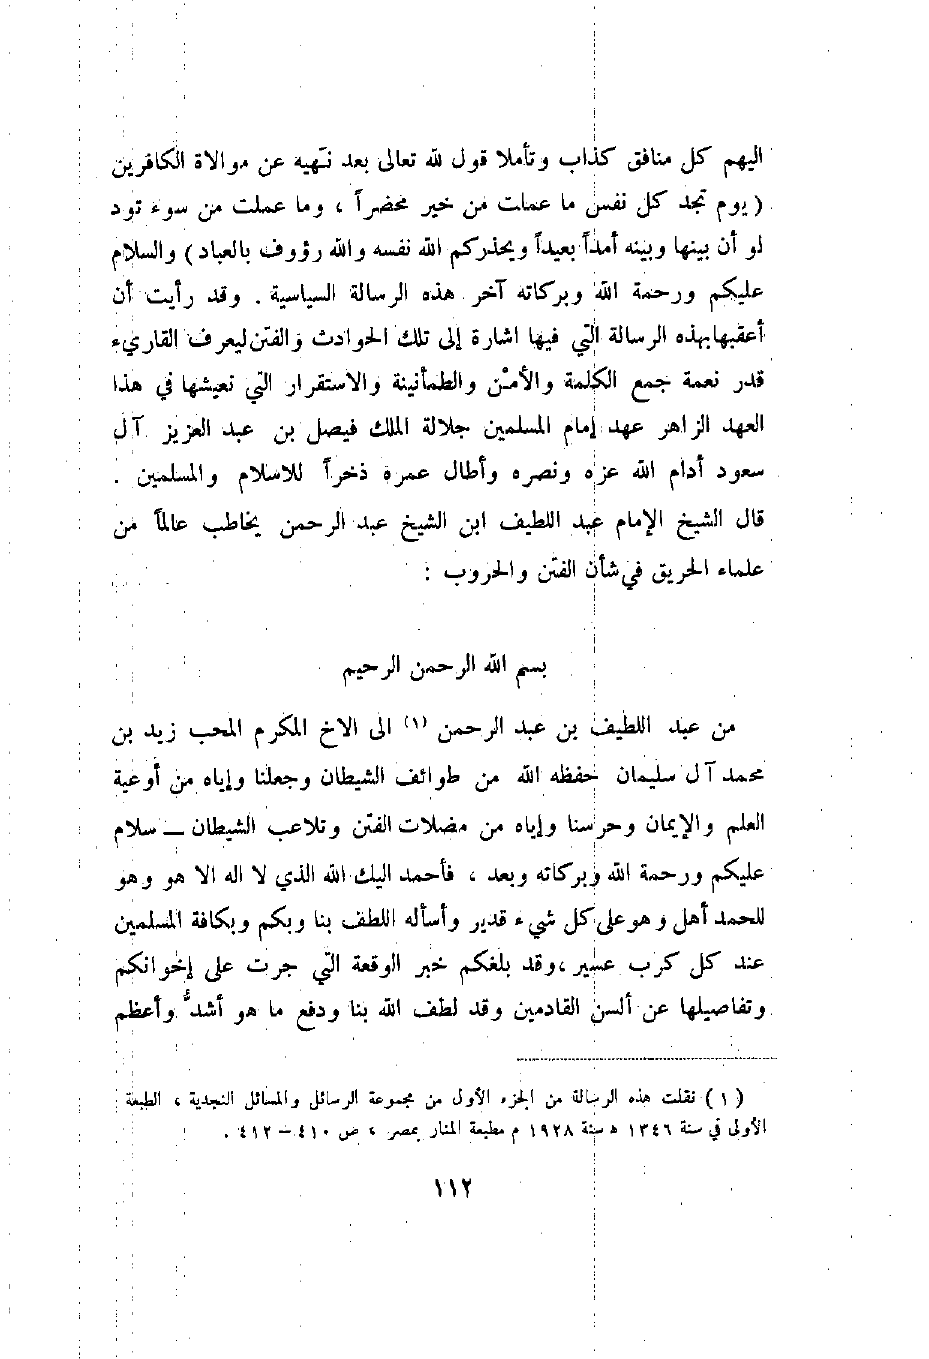 اليهم كل منافق كذاب وتأملا قول لله تعالى بعد نهيه عن موالاة الكافرين
( يوم تجد كل نفس ما عملت من خير محضراً ، وما عملت من سوء تود
لو أن بينها وبينه أمداً بعيداً ويحذركم الله نفسه والله رؤوف بالعباد ) والسلام
عليكم ورحمة الله وبركاته آخر هذه الرسالة السياسية . وقد رأيت أن
أعقبها بهذه الرسالة التي فيها اشارة إلى تلك الحوادث والفتن ليعرف القاريء
قدر نعمة جمع الكلمة والأمن والطمأنينة والاستقرار التي نعيشها في هذا
العهد الزاهر عهد إمام المسلمين جلالة الملك فيصل بن عبد العزيز آل
سعود أدام الله عزه ونصره وأطال عمره ذخراً للاسلام والمسلمين .
قال الشيخ الإمام عبد اللطيف ابن الشيخ عبد الرحمن يخاطب عالماً من
علماء الحريق في شأن الفتن والحروب :
بسم الله الرحمن الرحيم
من عبد اللطيف بن عبد الرحمن (١) الى الاخ المكرم المحب زيد بن
محمد آل سليمان حفظه الله من طوائف الشيطان وجعلنا وإياه من أوعية
العلم والإيمان وحرسنا وإياه من مضلات الفتن وتلاعب الشيطان ــ سلام
عليكم ورحمة الله وبركاته وبعد ، فأحمد اليك الله الذي لا اله الا هو وهو
للحمد أهل وهو على كل شيء قدير وأسأله اللطف بنا وبكم وبكافة المسلمين
عند كل كرب عسير ، وقد بلغكم خبر الوقعة التي جرت على إخوانكم
وتفاصيلها عن ألسن القادمين وقد لطف الله بنا ودفع ما هو أشدُّ وأعظم
( ١ ) نقلت هذه الرسالة من الجزء الأول من مجموعة الرسائل والمسائل النجدية ، الطبعة
الأولى في سنة ١٣٤٦ ه سنة ١٩٢٨ م مطبعة المنار بمصر ، ص ٤١٠ – ٤١٢ .
١١٢